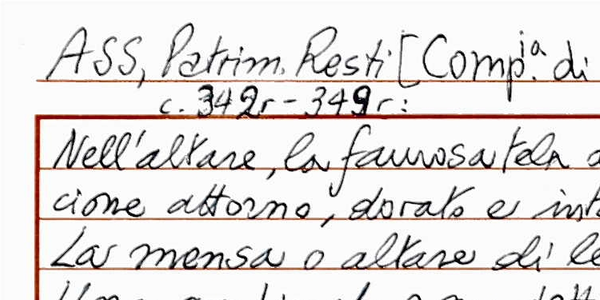 ASS, Patrim. Resti [Comp.ia di
c. 342r - 349r:
Nell'altare, la famosa tela
cione attorno, dorato e int
La mensa o altare di le